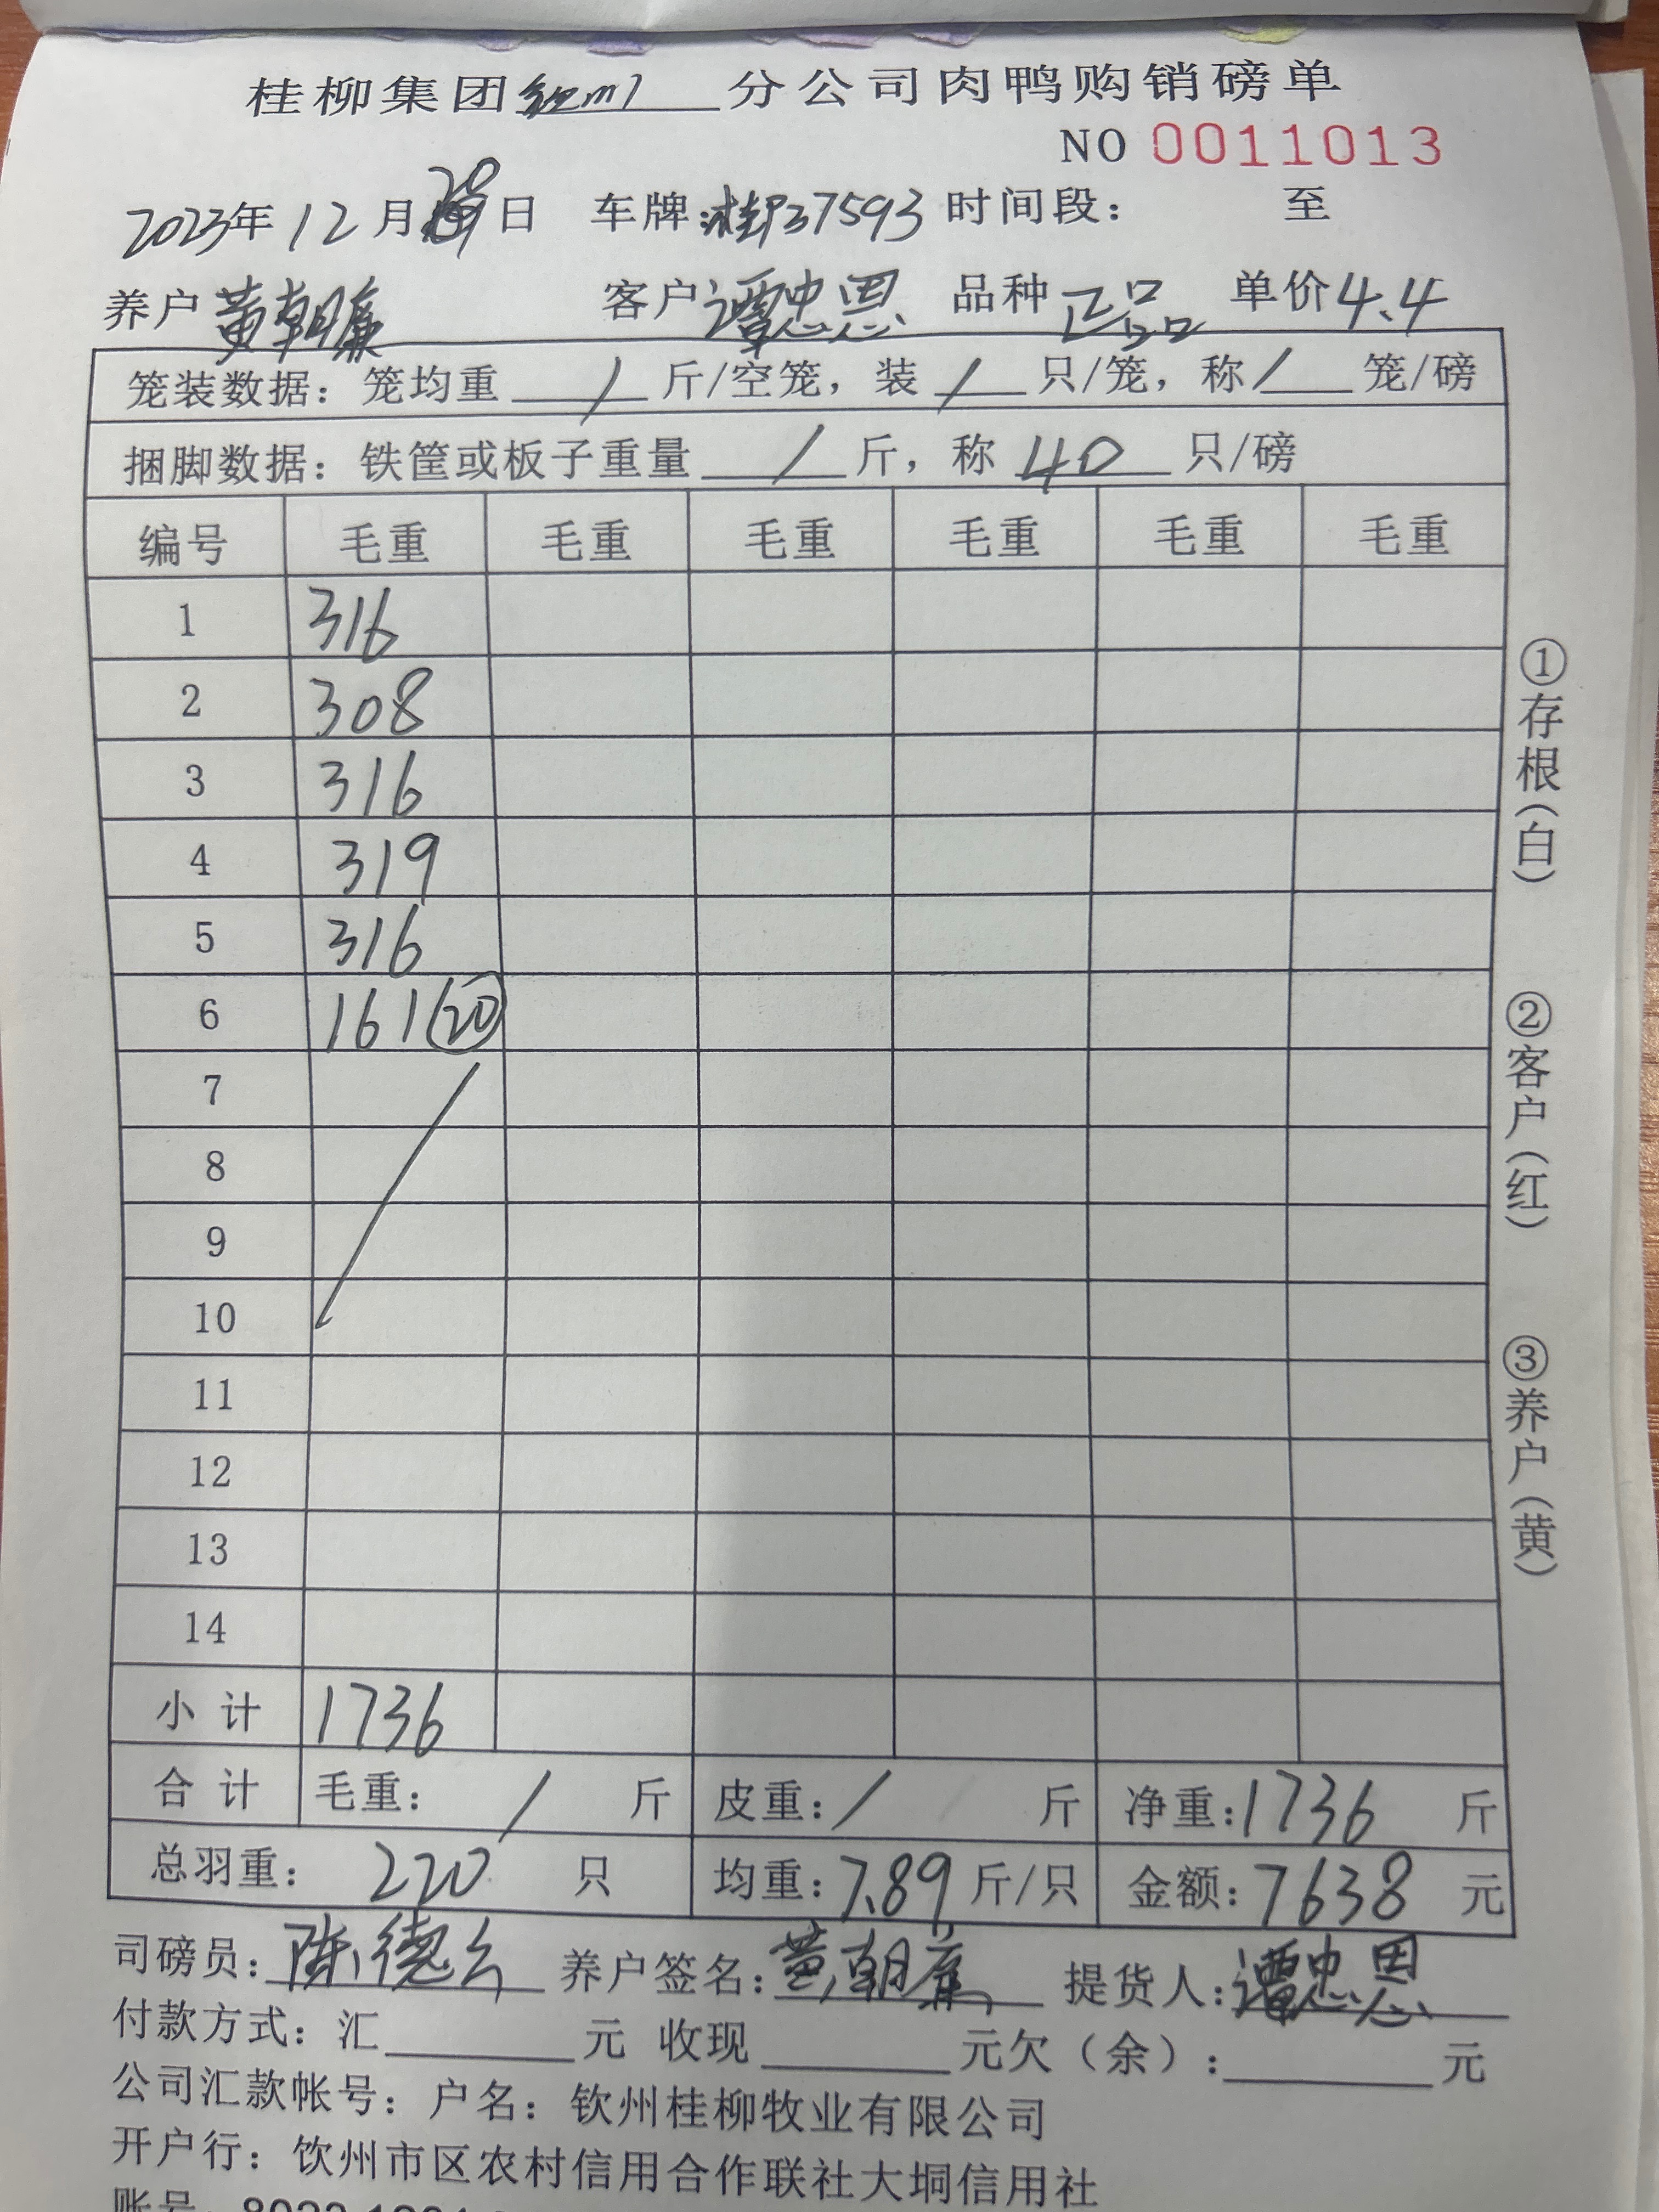 桂柳集团 分公司肉鸭购销磅单
NO 0011013
2023年12月 日 车牌: 37593 时间段: 至
养户 黄朝廉 客户 谭忠恩 品种 正品 单价 4.4
笼装数据：笼均重 / 斤/空笼，装 / 只/笼，称 / 笼/磅
捆脚数据：铁筐或板子重量 / 斤，称 40 只/磅
编号 毛重 毛重 毛重 毛重 毛重 毛重
1 316
2 308
3 316
4 319
5 316
6 161 (20)
7
8
9
10
11
12
13
14
小计 1736
合计 毛重: / 斤 皮重: / 斤 净重: 1736 斤
总羽重: 220 只 均重: 7.89 斤/只 金额: 7638 元
司磅员: 陈德 养户签名: 黄朝廉 提货人: 谭忠恩
付款方式: 汇 元 收现 元欠（余）: 元
公司汇款帐号: 户名: 钦州桂柳牧业有限公司
开户行: 饮州市区农村信用合作联社大垌信用社
账号:
①存根(白)
②客户(红)
③养户(黄)